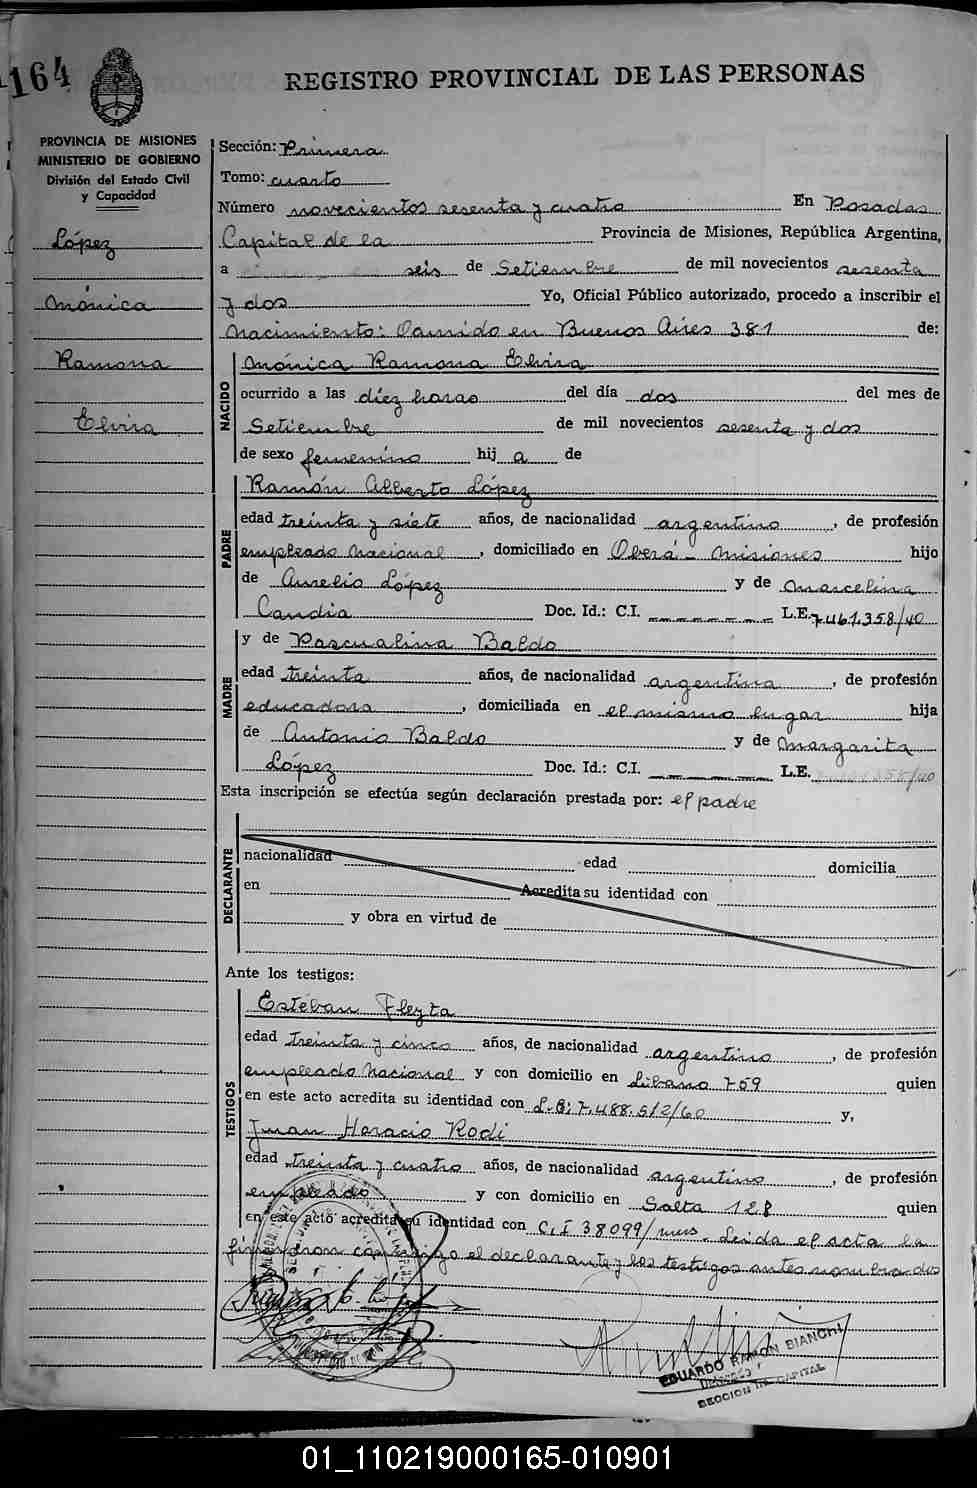 164
REGISTRO PROVINCIAL DE LAS PERSONAS
PROVINCIA DE MISIONES
MINISTERIO DE GOBIERNO
División del Estado Civil
y Capacidad
López
Mónica
Ramona
Elvira
Sección: Primera
Tomo: cuarto
Número novecientos sesenta y cuatro En Posadas
Capital de la Provincia de Misiones, República Argentina,
a seis de Setiembre de mil novecientos sesenta
y dos Yo, Oficial Público autorizado, procedo a inscribir el
nacimiento: Ocurrido en Buenos Aires 381 de:
NACIDO
Mónica Ramona Elvira
ocurrido a las diez horas del día dos del mes de
Setiembre de mil novecientos sesenta y dos
de sexo femenino hij a de
PADRE
Ramón Alberto López
edad treinta y siete años, de nacionalidad argentino, de profesión
empleado nacional, domiciliado en Oberá - Misiones hijo
de Aurelio López y de Marcelina
Candia Doc. Id.: C.I. L.E. 7.461.358/40
MADRE
y de Pascualina Baldo
edad treinta años, de nacionalidad argentina, de profesión
educadora, domiciliada en el mismo lugar hija
de Antonio Baldo y de Margarita
López Doc. Id.: C.I. L.E.
Esta inscripción se efectúa según declaración prestada por: el padre
DECLARANTE
nacionalidad edad domicilia
en Acredita su identidad con
y obra en virtud de
Ante los testigos:
TESTIGOS
Esteban Fleyta
edad treinta y cinco años, de nacionalidad argentino, de profesión
empleado nacional y con domicilio en Líbano 759 quien
en este acto acredita su identidad con L.E: 7.488.512/60 y,
Juan Horacio Rodi
edad treinta y cuatro años, de nacionalidad argentino, de profesión
empleado y con domicilio en Salta 128 quien
en este acto acredita su identidad con C.I 38099/mnes. Leida el acta la
firmaron conmigo el declarante y los testigos antes nombrados
EDUARDO RAMON BIANCHI
SECCION DE CAPITAL
01_110219000165-010901